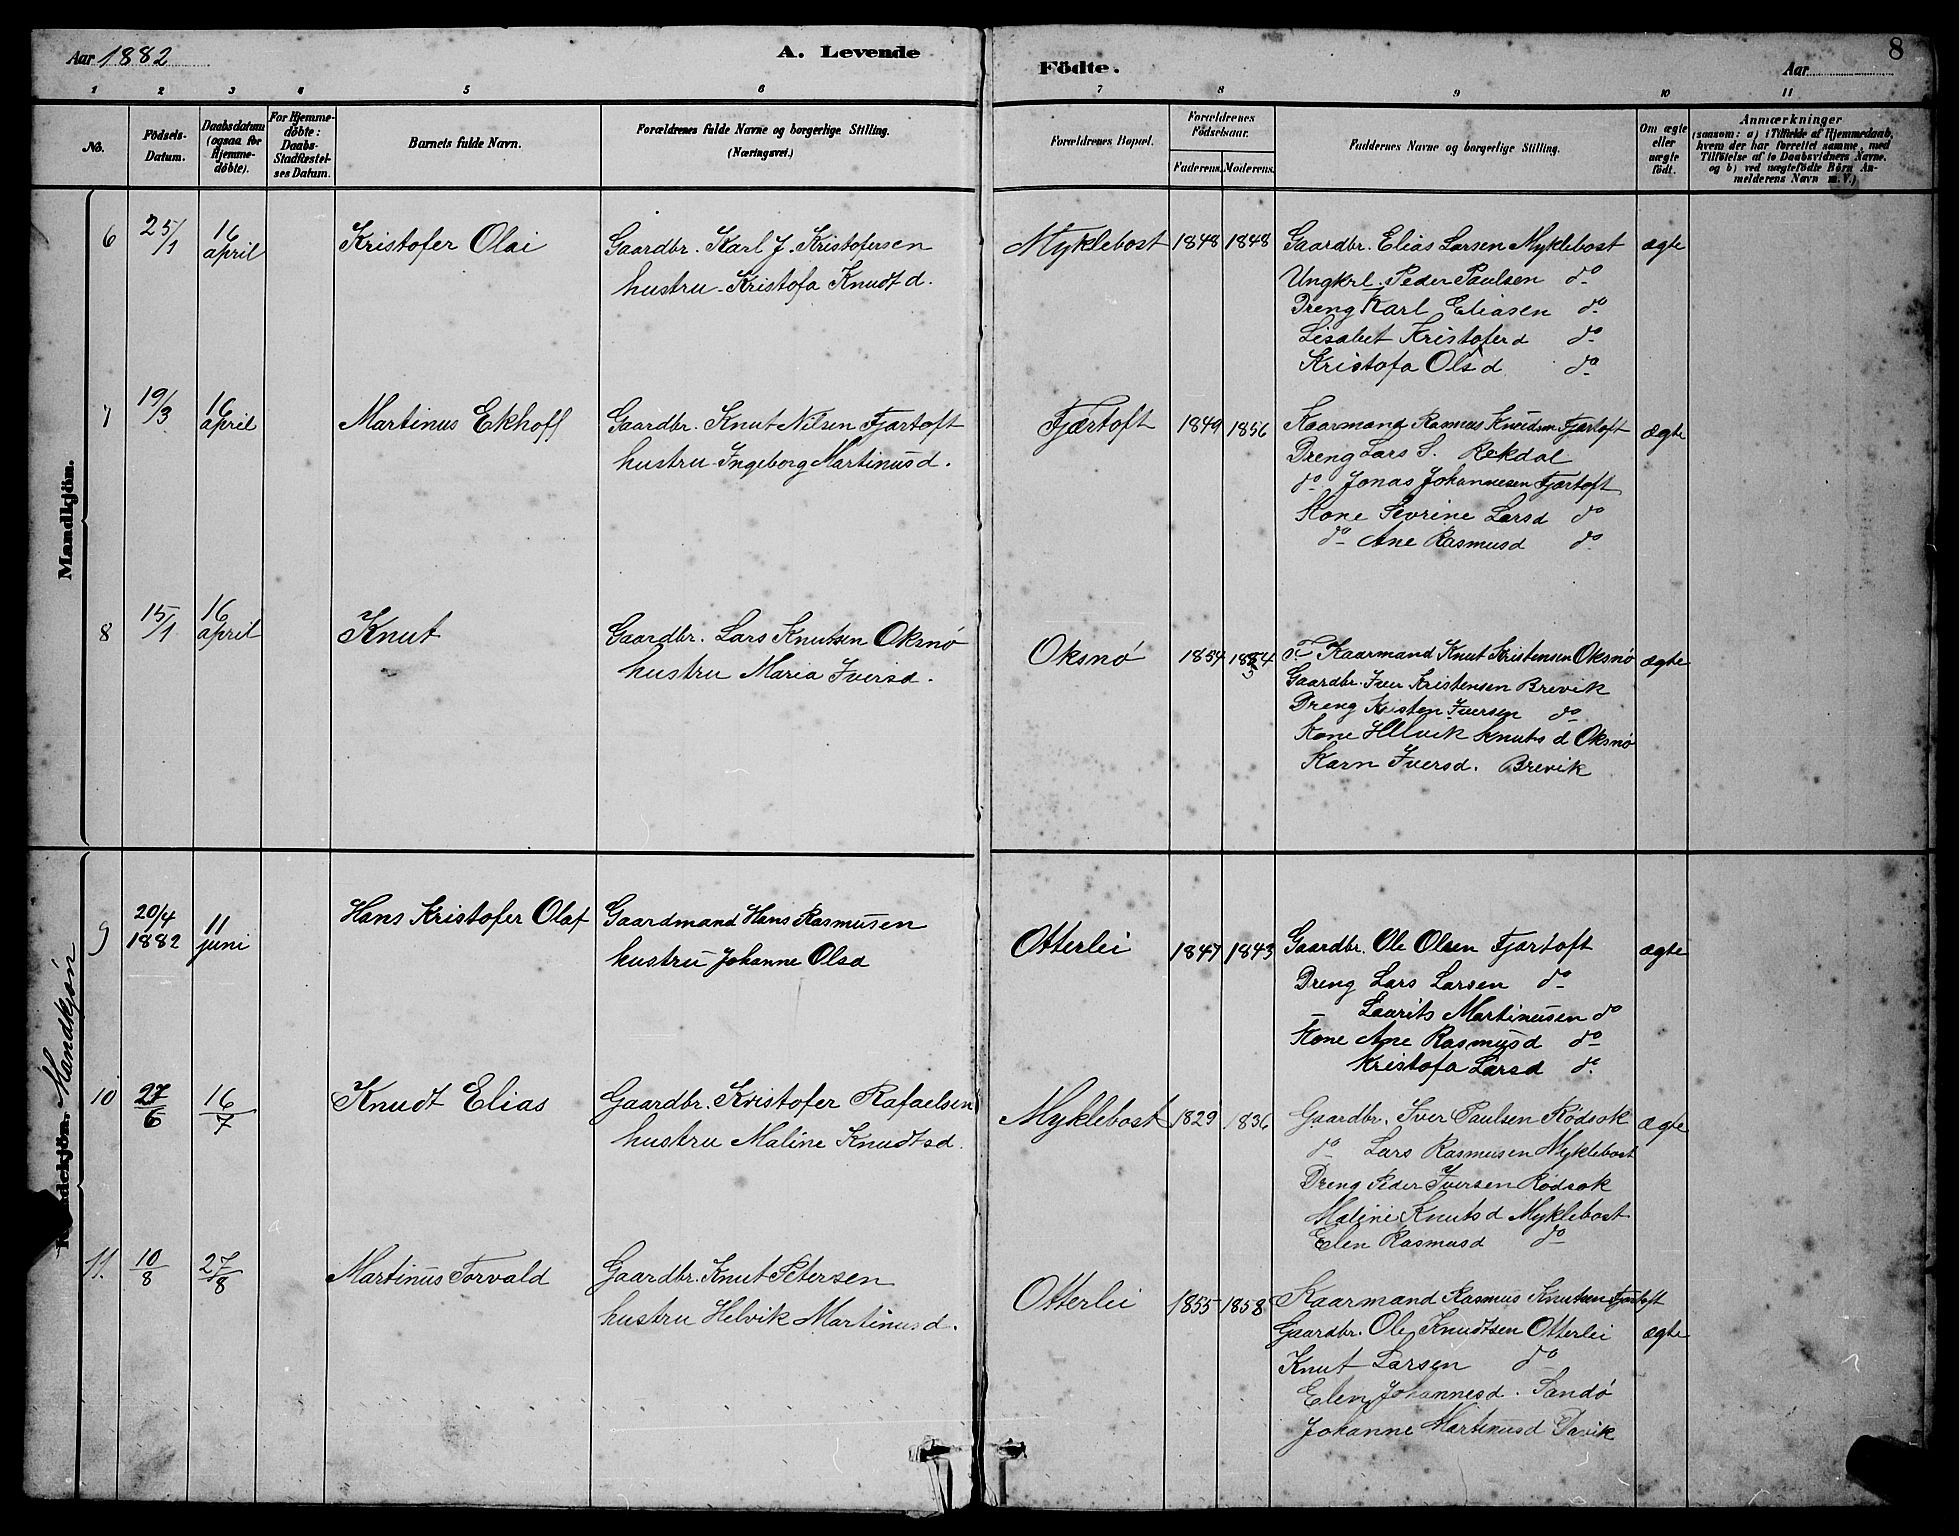 Aar 1882
A. Levende
Födte.
Aar
8
1 2 3 4 5 6 7 8 9 10 11
No.
Födsels-
Datum.
Daabsdatum
(ogsaa for
Hjemme-
döbte).
For Hjemme-
döbte:
Daabs-
Stadfæstel-
ses Datum.
Barnets fulde Navn.
Forældrenes fulde Navne og borgerlige Stilling.
(Næringsvei.)
Forældrenes Bopæl.
Forældrenes
Födselsaar.
Faderens. Moderens.
Faddernes Navne og borgerlige Stilling.
Om ægte
eller
uægte
födt.
Anmærkninger
(saasom: a) i Tilfælde af Hjemmedaab,
hvem der har forrettet samme, med
Tilföielse af to Daabsvidners Navne.
og b) ved uægtefödte Börn An-
melderens Navn m. V.)
Mandkjön.
6 25/1 16 april Kristofer Olai
Gaardbr. Karl J. Kristofersen
hustru Kristofa Knudtd.
Myklebost 1848 1848
Gaardbr. Elias Larsen Myklebost
Ungkrl. Peder Paulsen do
Dreng Karl Eliasen do
Lisabet Kristoferd do
Kristofa Olsd do
ægte
7 19/3 16 april Martinus Ekhoff
Gaardbr. Knut Nilsen Fjærtoft
hustru Ingeborg Martinusd.
Fjærtoft 1849 1856
Kaarmand Rasmus Knudsen Fjærtoft
Dreng Lars S. Rekdal
do Jonas Johannesen Fjærtoft
Kone Sevrine Larsd do
do Ane Rasmusd do
ægte
8 15/1 16 april Knut
Gaardbr. Lars Knutsen Oksnø
hustru Maria Iversd.
Oksnø 1854 1854
Kaarmand Knut Kristensen Oksnø
Gaardbr. Iver Kristensen Brevik
Dreng Kristen Iversen do
Kone Helvik Knutsd Oksnø
Karn Iversd. Brevik
ægte
Kvindekjön. Mandkjøn
9 20/4 1882 11 juni Hans Kristofer Olaf
Gaardmand Hans Rasmusen
hustru Johanne Olsd
Otterlei 1847 1843
Gaardbr. Ole Olsen Fjærtoft
Dreng Lars Larsen do
Laurits Martinusen do
Kone Ane Rasmusd do
Kristofa Larsd do
ægte
10 27/6 16/7 Knudt Elias
Gaardbr. Kristofer Rafaelsen
hustru Maline Knudtsd.
Myklebost 1829 1836
Gaardbr. Iver Paulsen Rødsok
do Lars Rasmusen Myklebost
Dreng Peder Iversen Rødsok
Maline Knutsd Myklebost
Elen Rasmusd do
ægte
11. 10/8 27/8 Martinus Torvald
Gaardbr. Knut Petersen
hustru Helvik Martinusd.
Otterlei 1855 1858
Kaarmand Rasmus Knutsen Fjærtoft
Gaardbr. Ole Knudtsen Otterlei
Knut Larsen do
Elen Johannesd. Sandø
Johanne Martinusd Davik
ægte